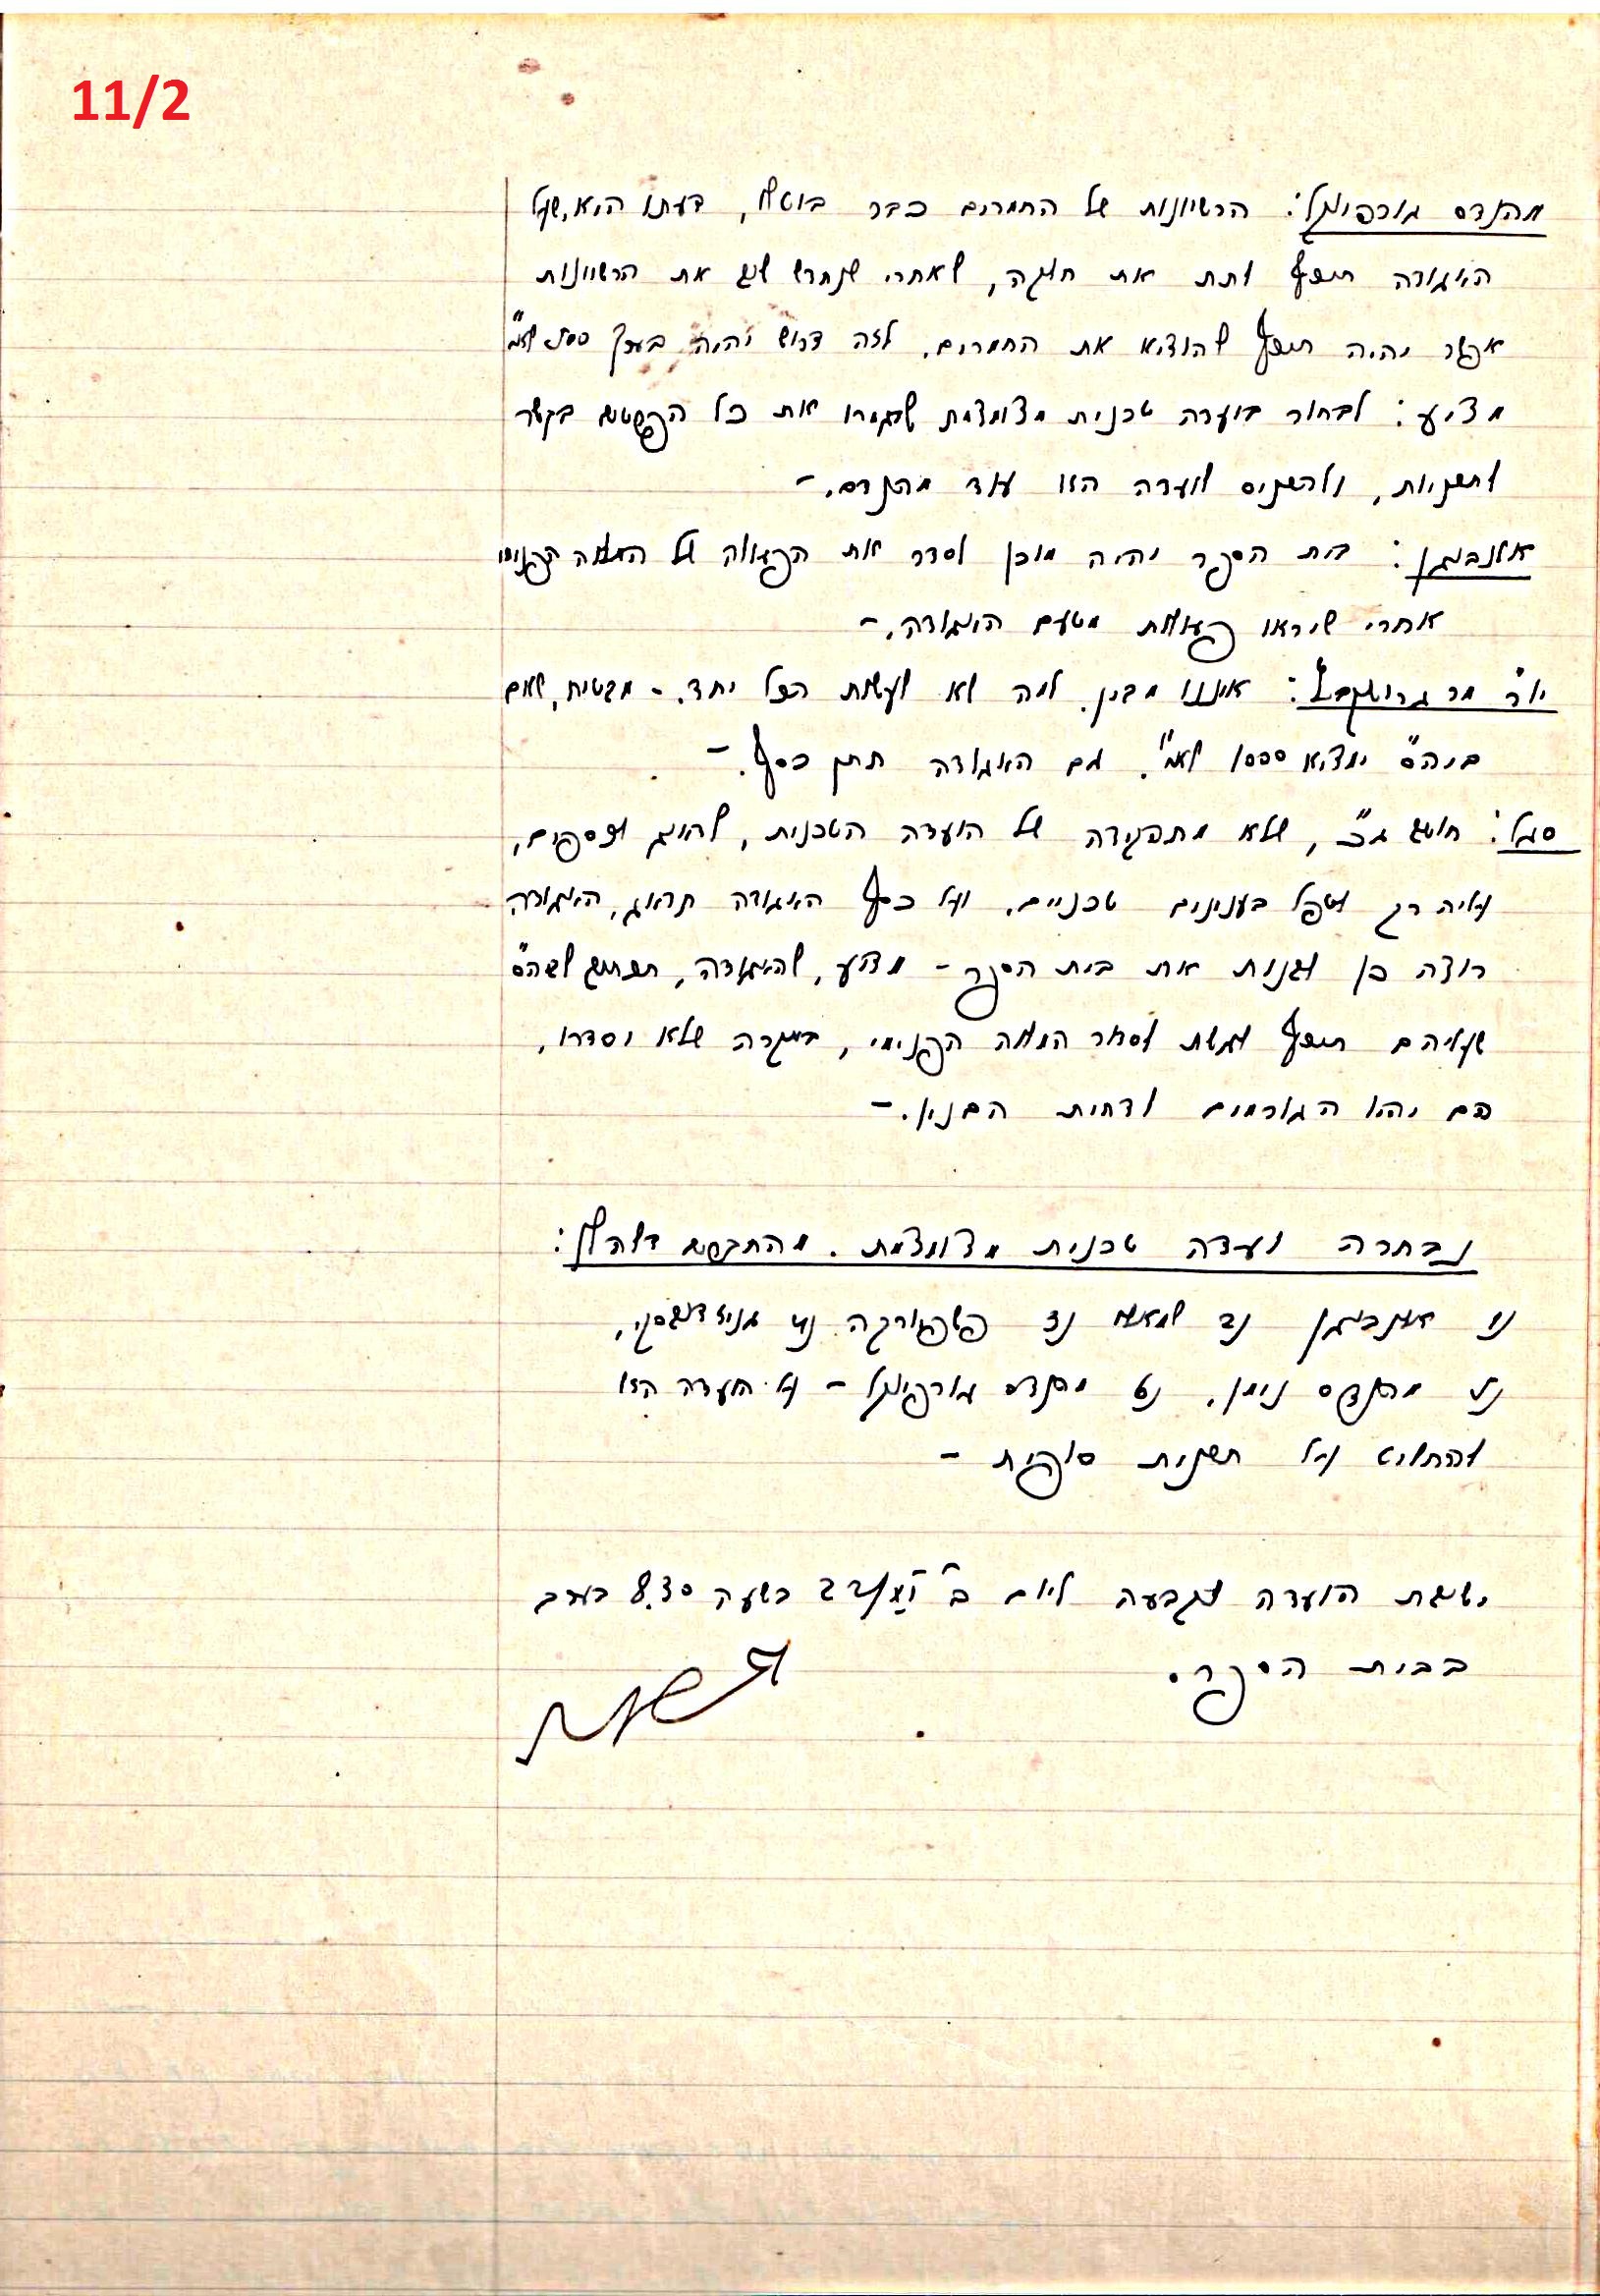 11/2
מהנדס גורפינקל: הרשיונות של החמרים כבר בוטלו, דעתו היא, שעל
האגודה תיכף לתת את חלקה, לאחרי שנחדש שוב את הרשיונות
אפשר יהיה תיכף להוציא את החמרים. לזה דרוש יהיה בערך 500
מציע: לבחור בועדה טכנית מצומצמת שיגמרו את כל הפרטים בקשר
לתכניות, ולהכניס לועדה הזו עוד מהנדס. –
בית הספר יהיה מוכן לסדר את הפעולה של המלוה הפנימי
אחרי שיראו פעולות מטעם האגודה. –
יו"ר מר איננו מבין למה לא לעשות הכל יחד. - מבטיח, שאם
ביה"ס יוציא 1000 לא"י. גם האגודה תתן כסף. –
סגל: חושב ג"כ, שלא מתפקידה של הועדה הטכנית, לדאוג לכספים,
עליה רק לטפל בענינים טכניים. ועל כסף האגודה תדאג, האגודה
רוצה כן לבנות את בית הספר – מציע, להאגודה, תכתוב לביה"ס
שעליהם תיכף לגשת לסדור המלוה הפנימי, במקרה שלא יסדרו,
הם יהיו הגורמים לדחית הבנין. –
נבחרה ועדה טכנית מצומצמת. מהחברים דלהלן:
ה' ה' ה'
ה' מהנדס נוימן. ה' מהנדס גורפינקל – על הועדה הזו
להחליט על תכנית סופית –
ישיבת הועדה נקבעה ליום ב' בשעה 8.30 בערב
בבית הספר.